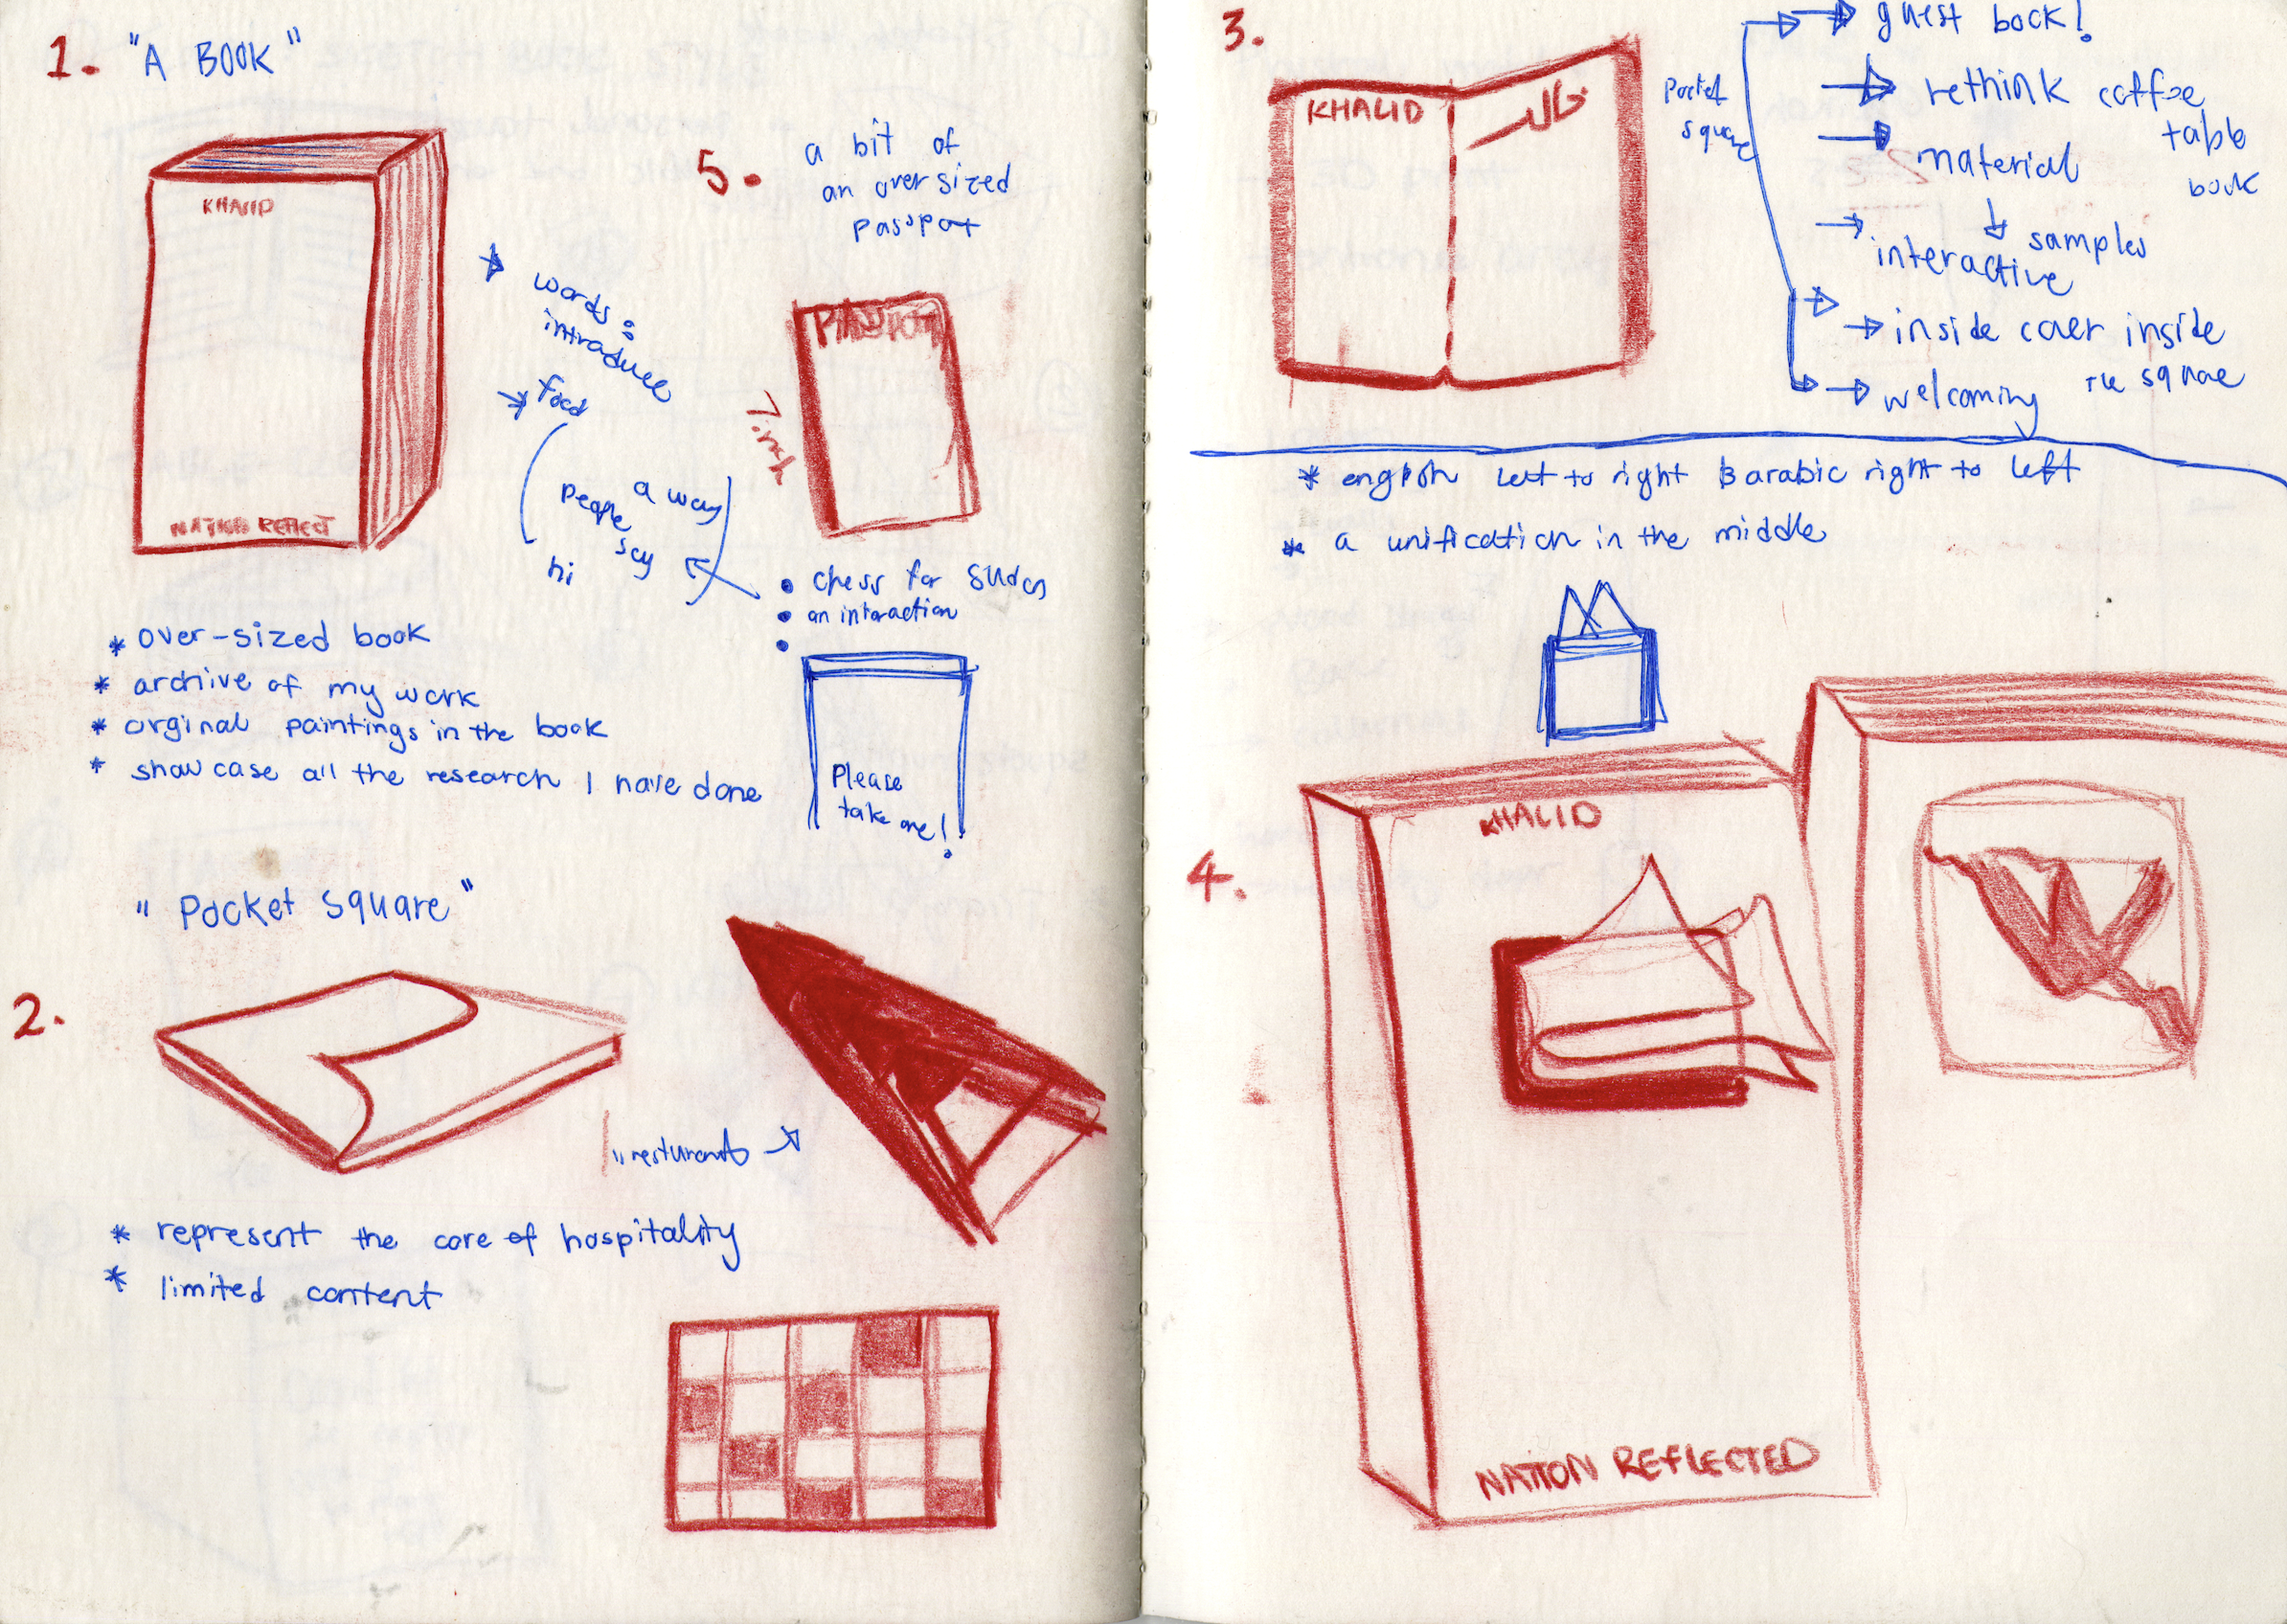 1. "A BOOK"
KHALID
NATION REFLECT
words:
introduce
food
a way
people
say
hi
* over-sized book
* archive of my work
* orginal paintings in the book
* show case all the research I have done
5. a bit of
an over sized
passport
PASSPORT
7 inch
• chess for
• an interaction
•
Please
take one!
" Pocket Square "
2.
* represent the core of hospitality
* limited content
3.
KHALID
خالد
Pocket
square
→ guest book!
→ rethink coffee
table
book
→ material
↓
samples
→ interactive
→ inside cover inside
the square
→ welcoming
* english left to right & arabic right to left
* a unification in the middle
4.
KHALID
NATION REFLECTED